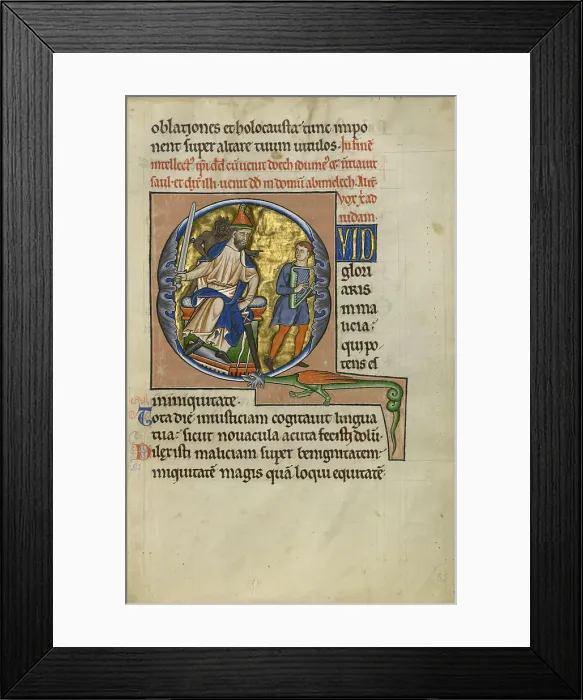 oblationes et holocausta: tunc impo
nent super altare tuum uitulos. In finē
intellectꝰ
saul et
uox x̄ ad
iudam.
QVID
glori
aris
in ma
licia:
qui po
tens es
in iniquitate.
Tota die iniusticiam cogitauit lingua
tua: sicut nouacula acuta fecisti dolū.
Dilexisti maliciam super benignitatem:
iniquitatē magis quā loqui equitatē.